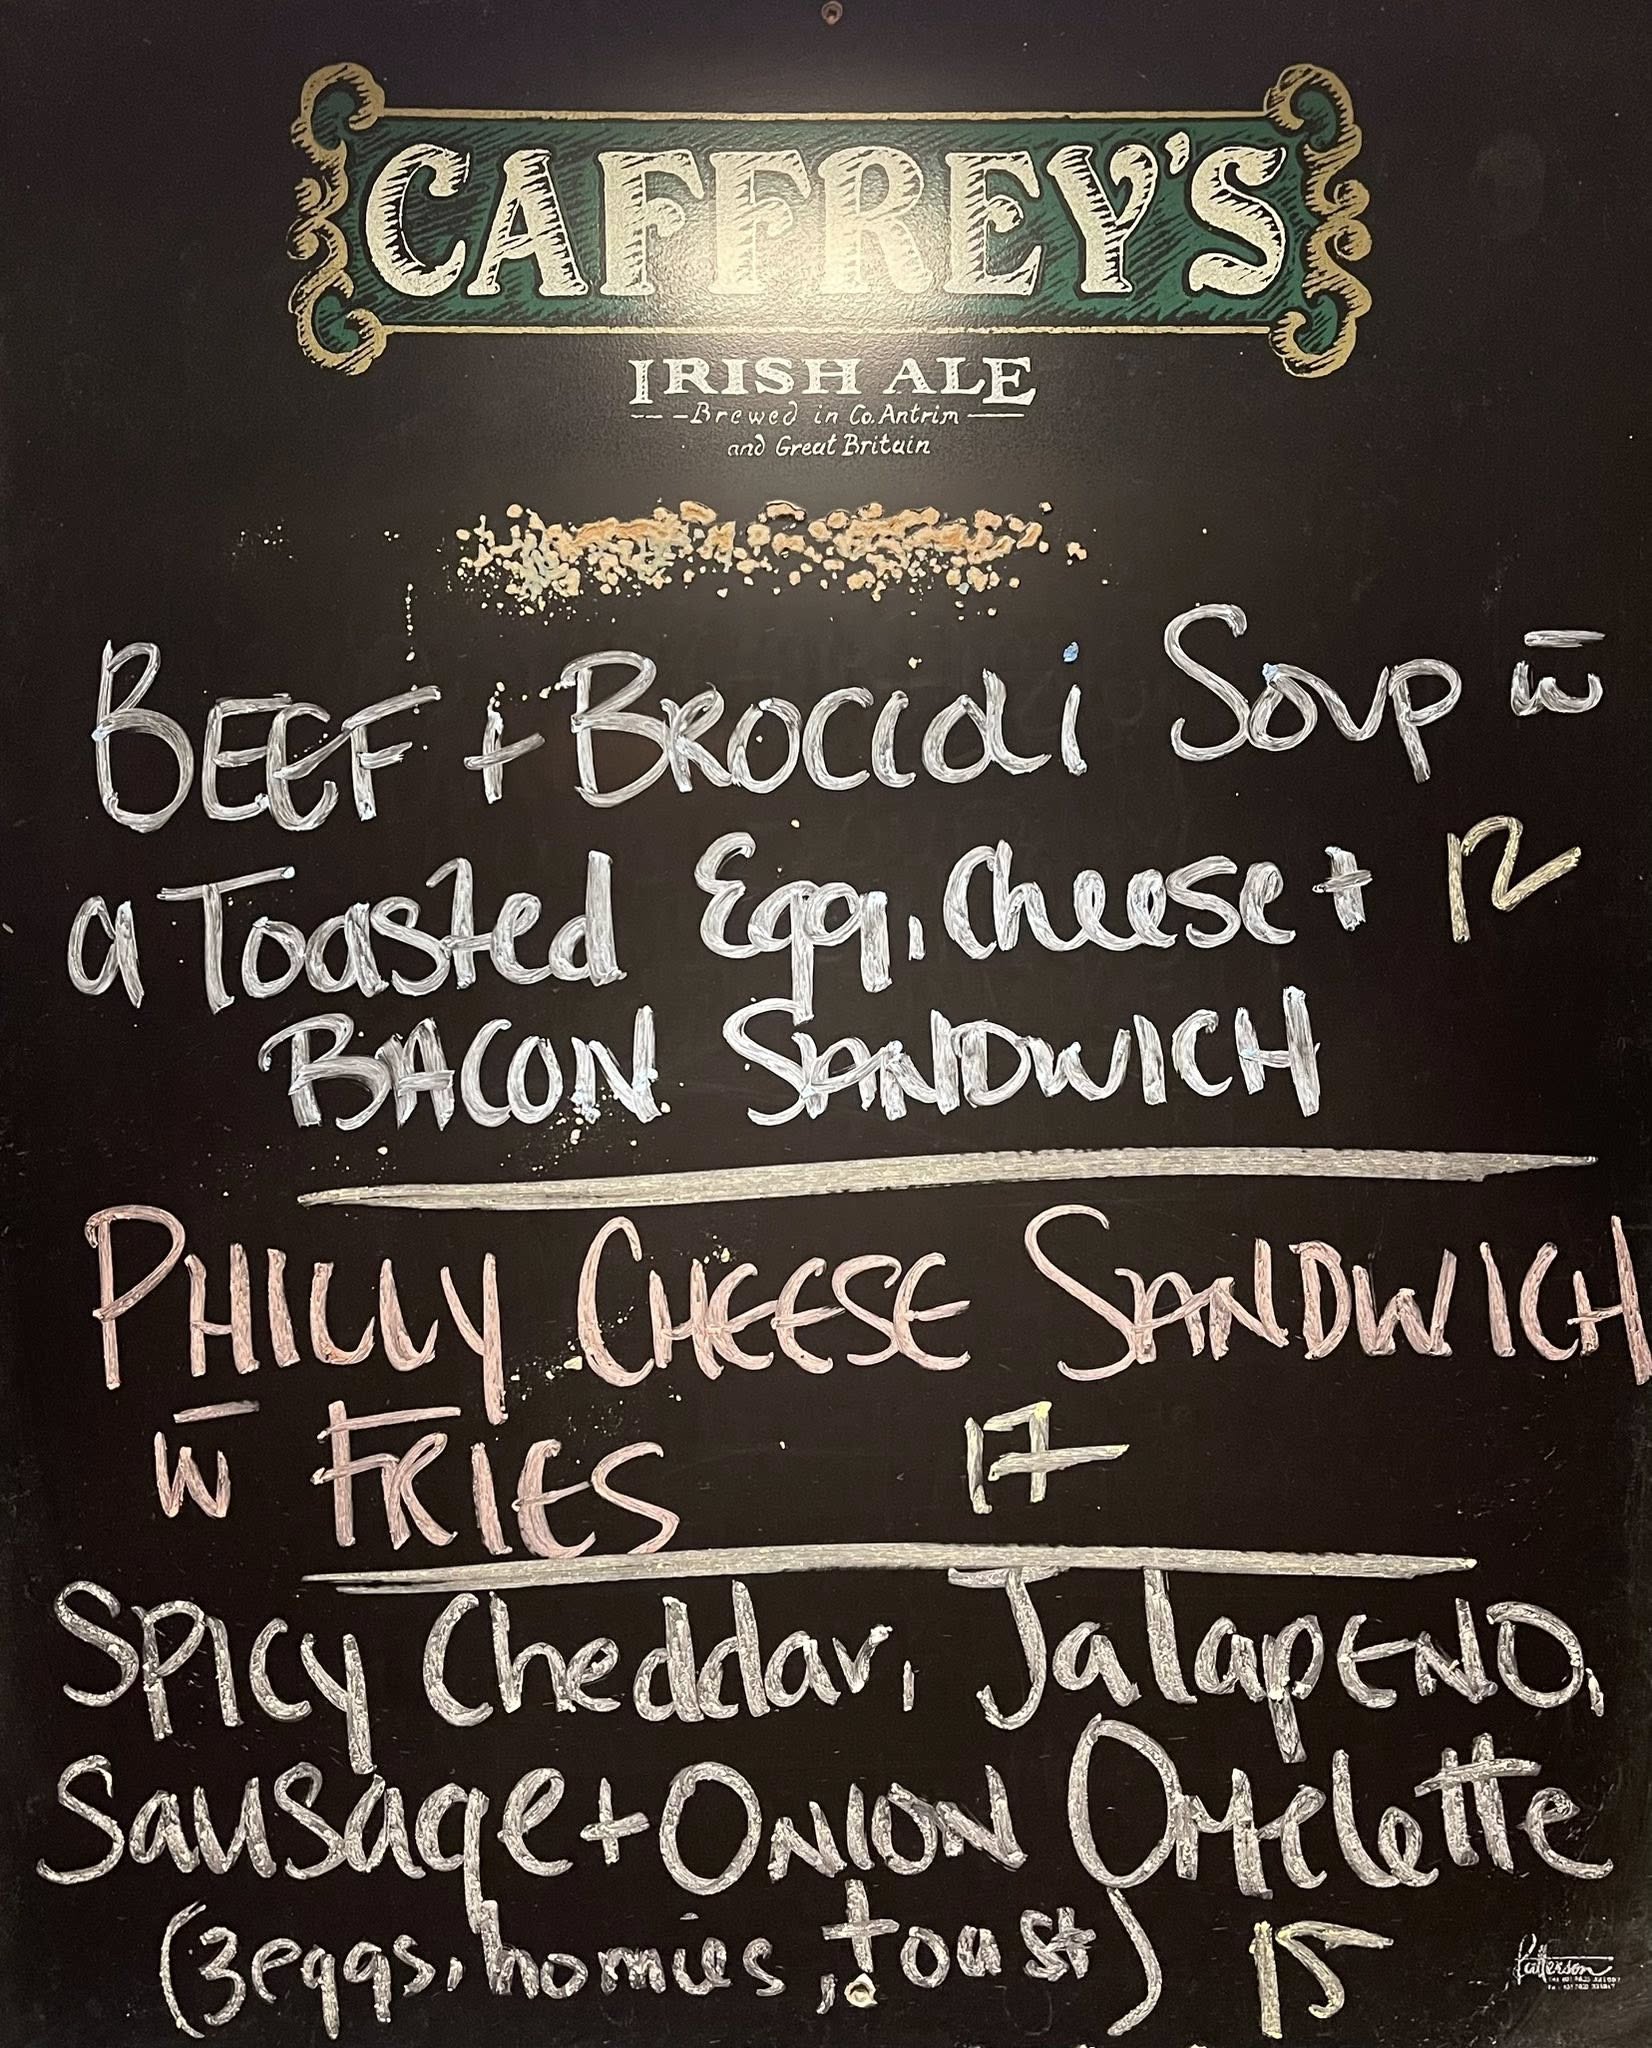 CAFFREY'S
IRISH ALE
Brewed in Co. Antrim
and Great Britain
BEEF + BROCCOLI SOUP w̄
a Toasted Egg, Cheese + 12
BACON SANDWICH
PHILLY CHEESE SANDWICH
w̄ FRIES 17
SPICY Cheddar, JalapENO,
Sausage + ONION Omelette
(3 eggs, homies, toast) 15
Patterson